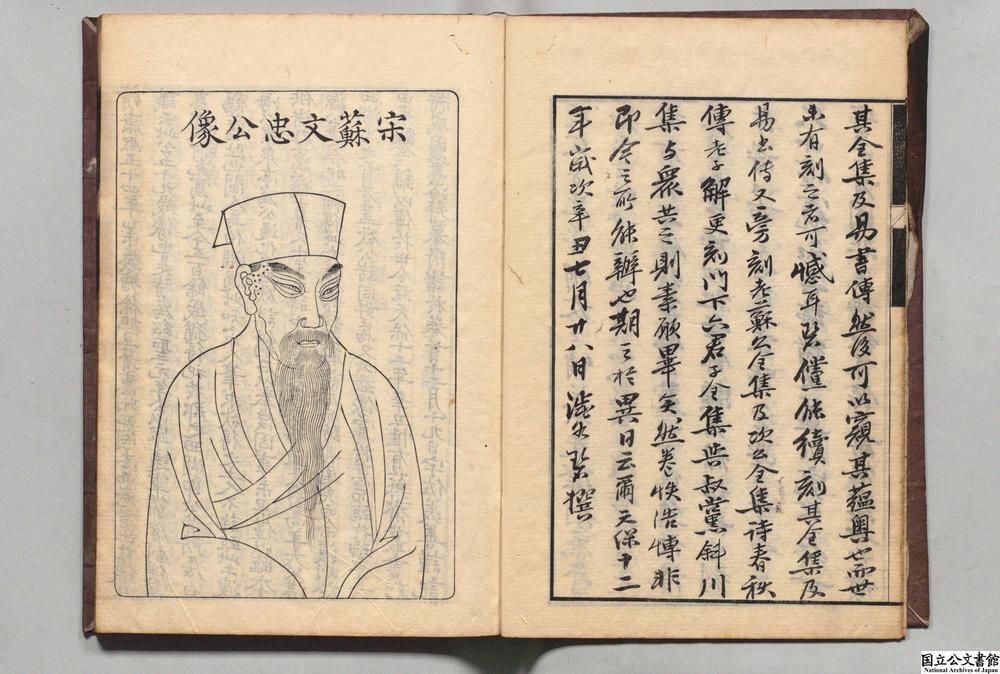 其全集及易書傳然後可以窺其蘊奧也而世
未有刻之者可憾耳茲儻能續刻其全集及
易書傳又旁刻老蘇公全集及次公全集詩春秋
傳老子解更刻門下六君子全集與叔黨斜川
集与衆共之則素願畢矣然卷帙浩博非
即今之所能辦也期之於異日云爾天保十二
年歲次辛丑七月廿八日 撰
宋蘇文忠公像
国立公文書館
National Archives of Japan